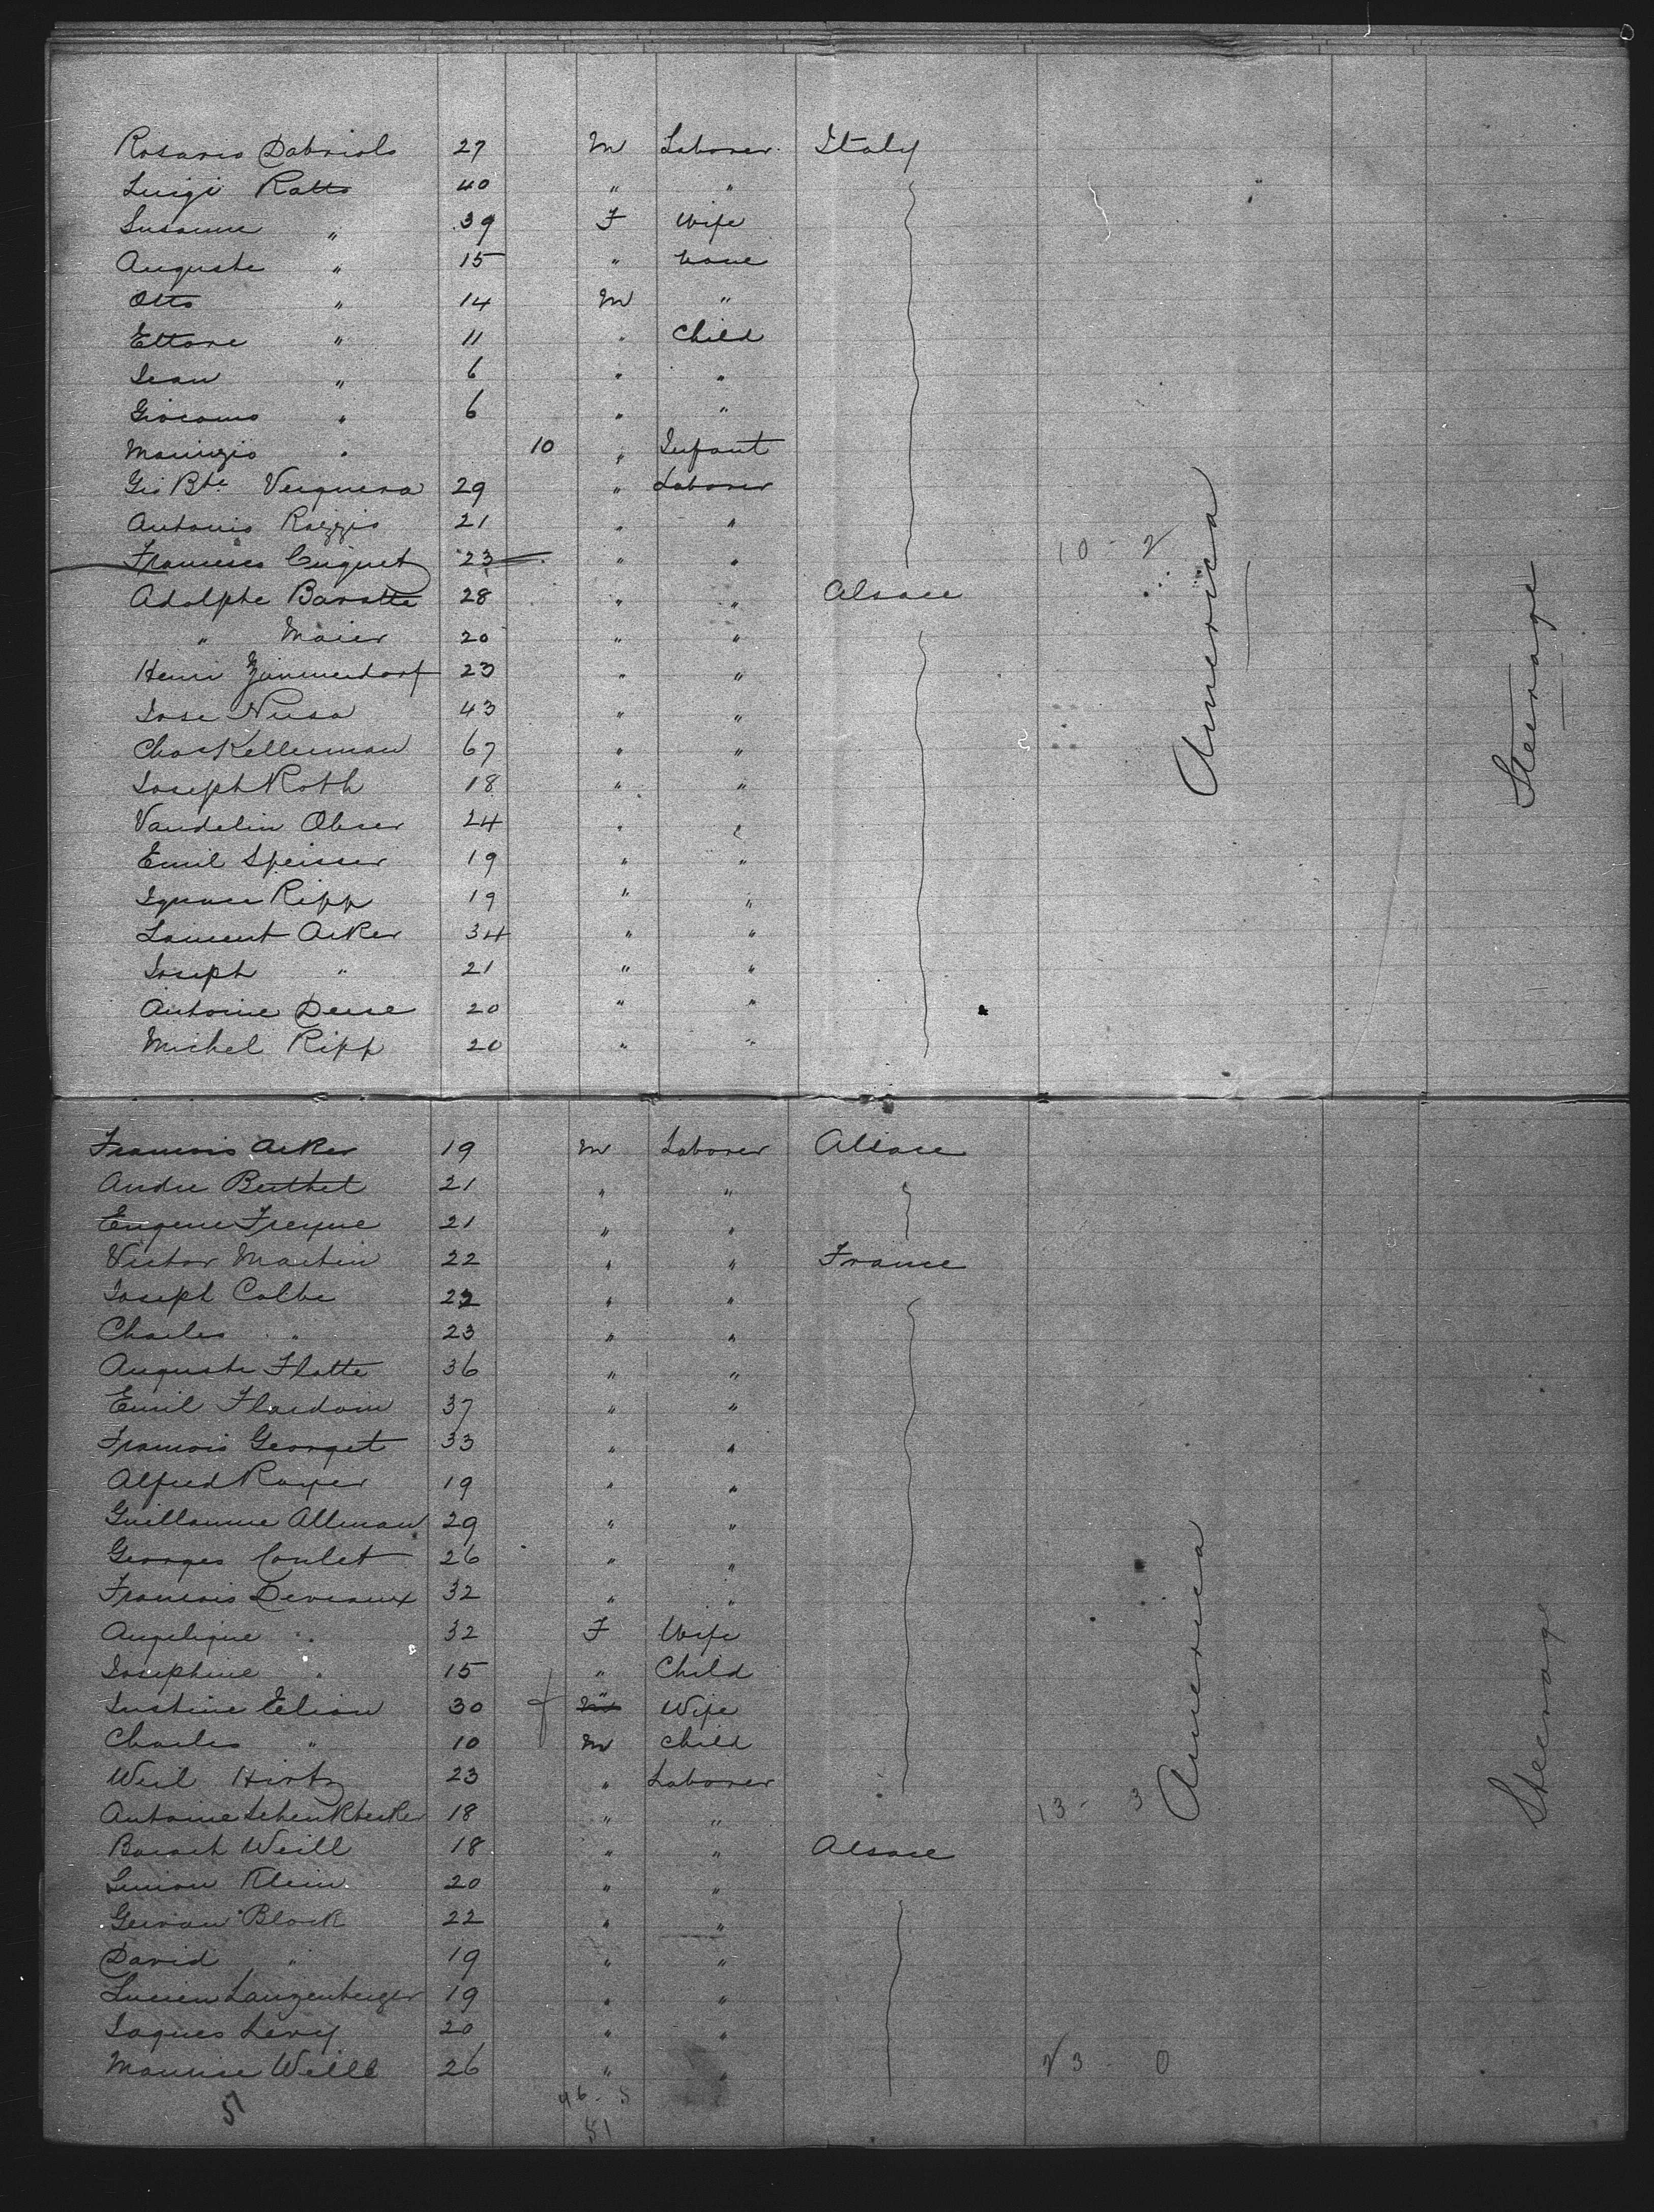 Rosario Dabriolo 27 M Laborer Italy
Luigi Ratto 40 " "
Susanne " 39 F Wife
Auguste " 15 " none
Otto " 14 M "
Ettore " 11 " Child
Jean " 6 " "
Giacomo " 6 " "
Maurizio " 10 " Infant
Gio Bte Verguera 29 " Laborer
Antonio Razzio 21 " "
Francesco Cuiguet 23 " " 10 - 2
Adolphe Baratte 28 " " Alsace
" Maier 20 " "
Henri Zimmerdorf 23 " "
Jose Nusa 43 " "
Chas Kellerman 67 " "
Joseph Roth 18 " "
Vandelin Obser 24 " "
Emil Speisser 19 " "
Ignace Ripp 19 " "
Laurent Acker 34 " "
Joseph " 21 " "
Antoine 20 " "
Michel Ripp 20 " "
America
Steerage
Francois Acker 19 M Laborer Alsace
Andre Berthet 21 " "
Eugene Freyne 21 " "
Victor Martin 22 " " France
Joseph Colbe 22 " "
Charles " 23 " "
Auguste Flotte 36 " "
Emil Flardoin 37 " "
Francois Georget 33 " "
Alfred Royer 19 " "
Guillaume Allman 29 " "
Georges Coulet 26 " "
Francois Deveaux 32 " "
Angelique " 32 F Wife
Josephine " 15 " Child
Justine Elion 30 " Wife
Charles " 10 M Child
Weil Hirtz 23 " Laborer
Antoine Schenkbecker 18 " " 13 - 3
Barach Weill 18 " " Alsace
Simon Klein 20 " "
Gerson Block 22 " "
David " 19 " "
Lucien Langenberger 19 " "
Jaques Levy 20 " "
Maurice Weill 26 " " 23 - 0
America
Steerage
51 46 - 5
51